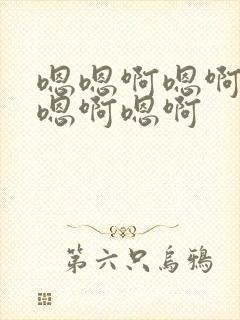 嗯嗯啊嗯啊
嗯啊嗯啊
第六只乌鸦